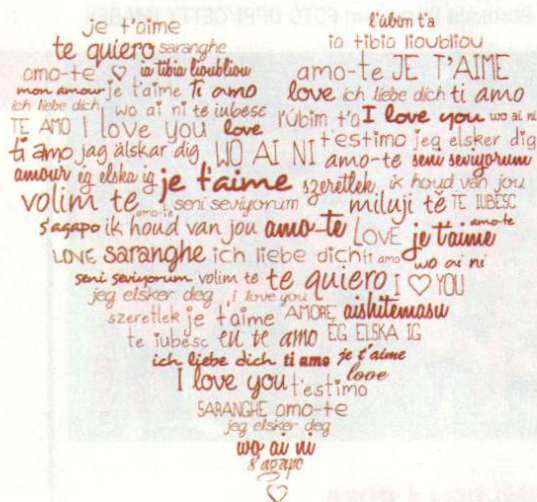 je t'aime
l'úbim t'a
te quiero saranghe
ia tibia lioubliou
amo-te ♡ ia tibia lioubliou
amo-te JE T'AIME
mon amour je t'aime ti amo
love ich liebe dich ti amo
ich liebe dich wo ai ni te iubesc
l'úbim t'a I love you wo ai ni
TE AMO I love you love
t'estimo jeg elsker dig
ti amo jag älskar dig WO AI NI amo-te seni seviyorum
amour ég elska ig je t'aime szeretlek ik houd van jou
volim te amo-te seni seviyorum miluji tě TE IUBESC
s'agapo ik houd van jou amo-te LOVE je t'aime amo-te
LOVE saranghe ich liebe dich ti amo wo ai ni
seni seviyorum volim te te quiero I ♡ YOU
jeg elsker deg I love you
szeretlek je t'aime AMORE aishitemasu
te iubesc eu te amo ÉG ELSKA IG
ich liebe dich ti amo je t'aime
I love you t'estimo love
SARANGHE amo-te
jeg elsker deg
wo ai ni
s'agapo
♡